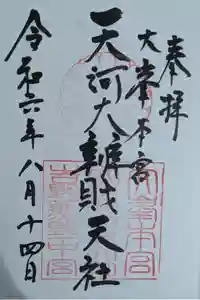 奉拝
大峯本宮
天河大辨財天社
令和六年八月十四日